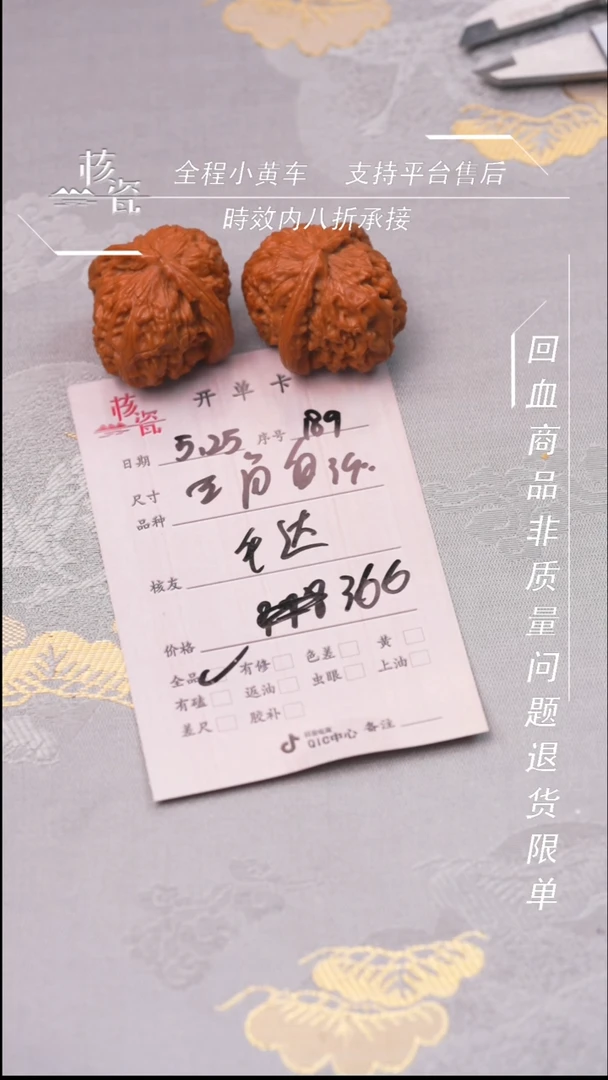 核瓷
全程小黄车 支持平台售后
時效内八折承接
回血商品非质量问题退货限单
核瓷
开单卡
日期 5.25 序号 189
尺寸
品种
核友
价格 366
全品 ✓ 有修 色差 黄
有磕 返油 虫眼 上油
差尺 胶补
QIC中心 备注